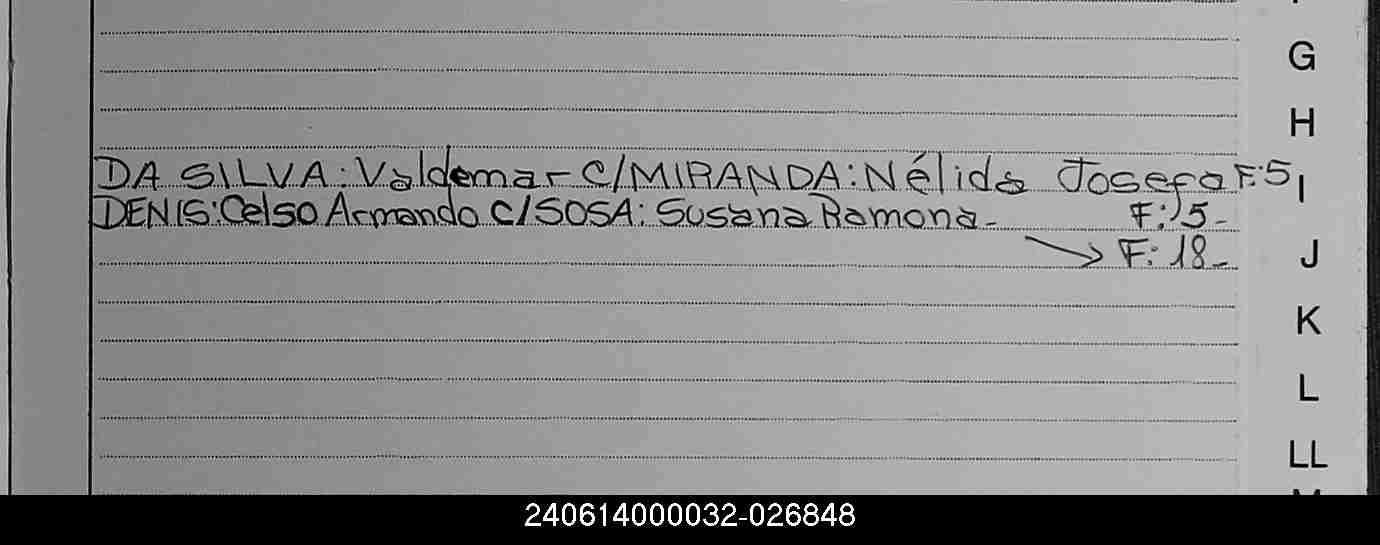 G
H
DA SILVA: Valdemar C/MIRANDA: Nélida Josefa F:5
I
DENIS: Celso Armando C/SOSA: Susana Ramona- F: 15-
→ F: 18-
J
K
L
LL
240614000032-026848